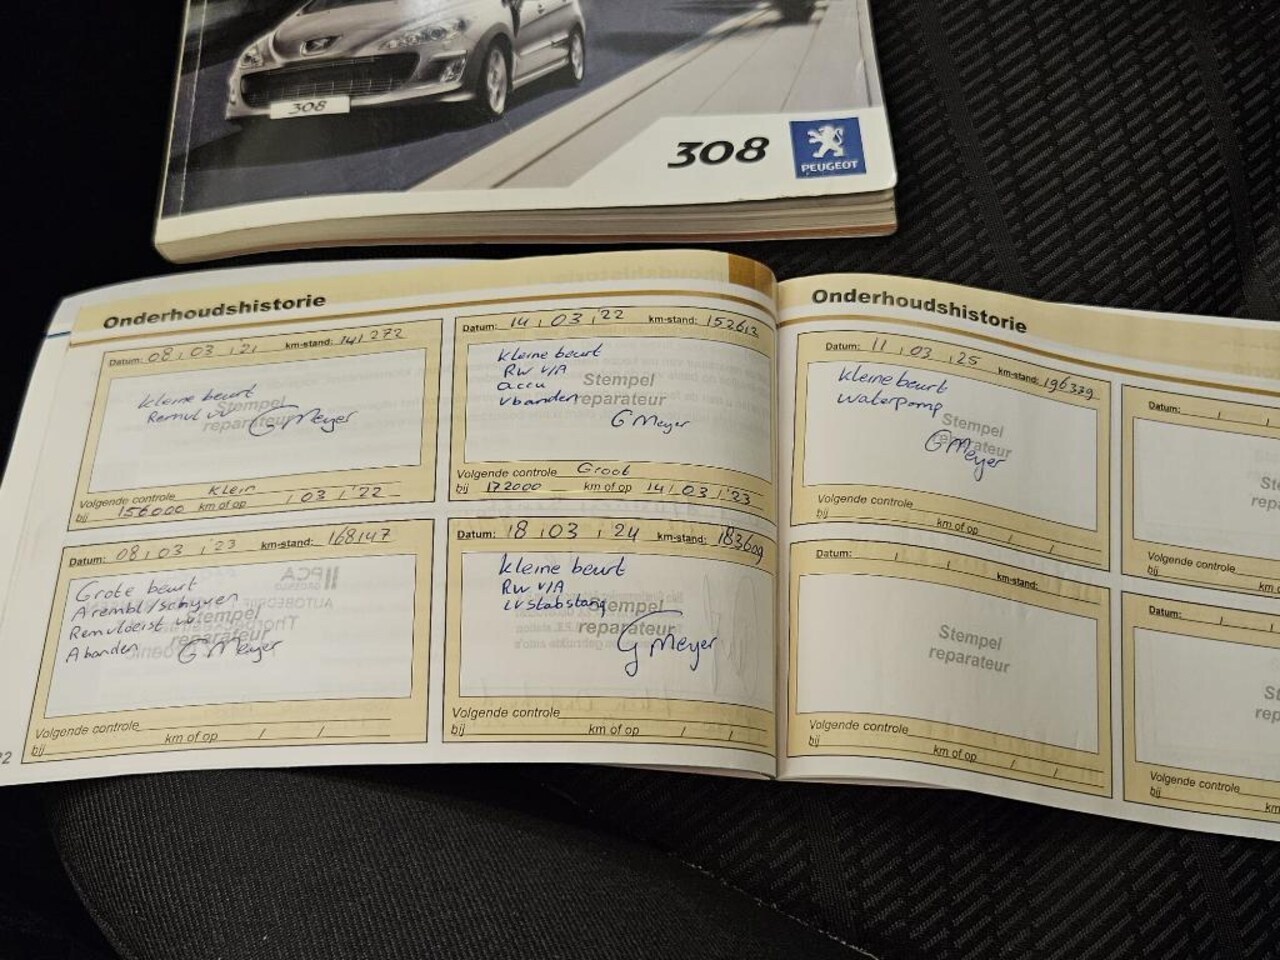 308
308
PEUGEOT
Onderhoudshistorie
Datum: 08 / 03 / '21 km-stand: 141272
Kleine beurt
Remvl vv
Stempel
reparateur
G Meyer
Volgende controle Klein
bij 156000 km of op / 03 / '22
Datum: 14 / 03 / '22 km-stand: 152612
Kleine beurt
Rw v/A
accu
vbanden
Stempel
reparateur
G Meyer
Volgende controle Groot
bij 172000 km of op 14 / 03 / '23
Datum: 08 / 03 / '23 km-stand: 168147
Grote beurt
A rembl/schijven
Remvloeist vv
A banden
Stempel
reparateur
G Meyer
Volgende controle
bij km of op / /
Datum: 18 / 03 / 24 km-stand: 183609
Kleine beurt
Rw v/A
LV stabstang
Stempel
reparateur
G Meyer
Volgende controle
bij km of op / /
Onderhoudshistorie
Datum: 11 / 03 / 25 km-stand: 196339
Kleine beurt
waterpomp
Stempel
reparateur
G Meyer
Volgende controle
bij km of op / /
Datum: / / km-stand:
Stempel
reparateur
Volgende controle
bij km of op / /
Datum: / /
Volgende controle
bij km
Datum: / /
Volgende controle
bij km